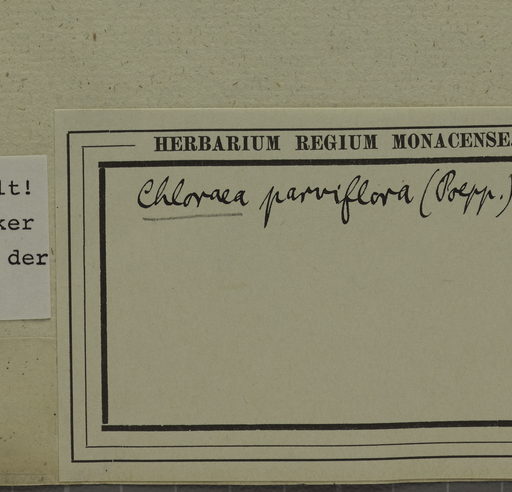 HERBARIUM REGIUM MONACENSE.
Chloraea parviflora (Poepp.)
lt!
ker
der